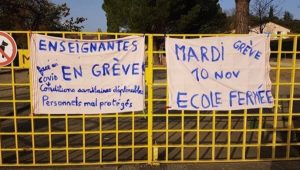 ENSEIGNANTES
EN GRÈVE
Covid
+ Conditions sanitaires déplorables
Personnels mal protégés
MARDI GRÈVE
10 NOV
ECOLE FERMÉE